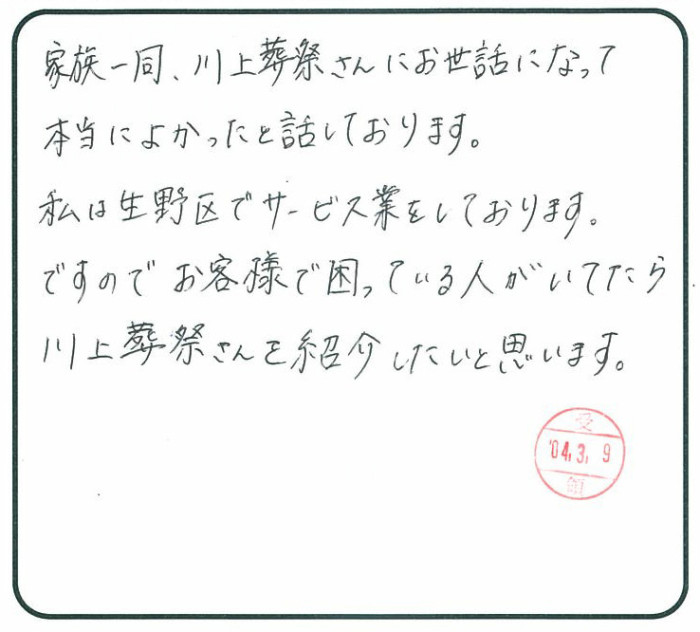 家族一同、川上葬祭さんにお世話になって
本当によかったと話しております。
私は生野区でサービス業をしております。
ですのでお客様で困っている人がいてたら
川上葬祭さんを紹介したいと思います。
受
'04.3.9
領